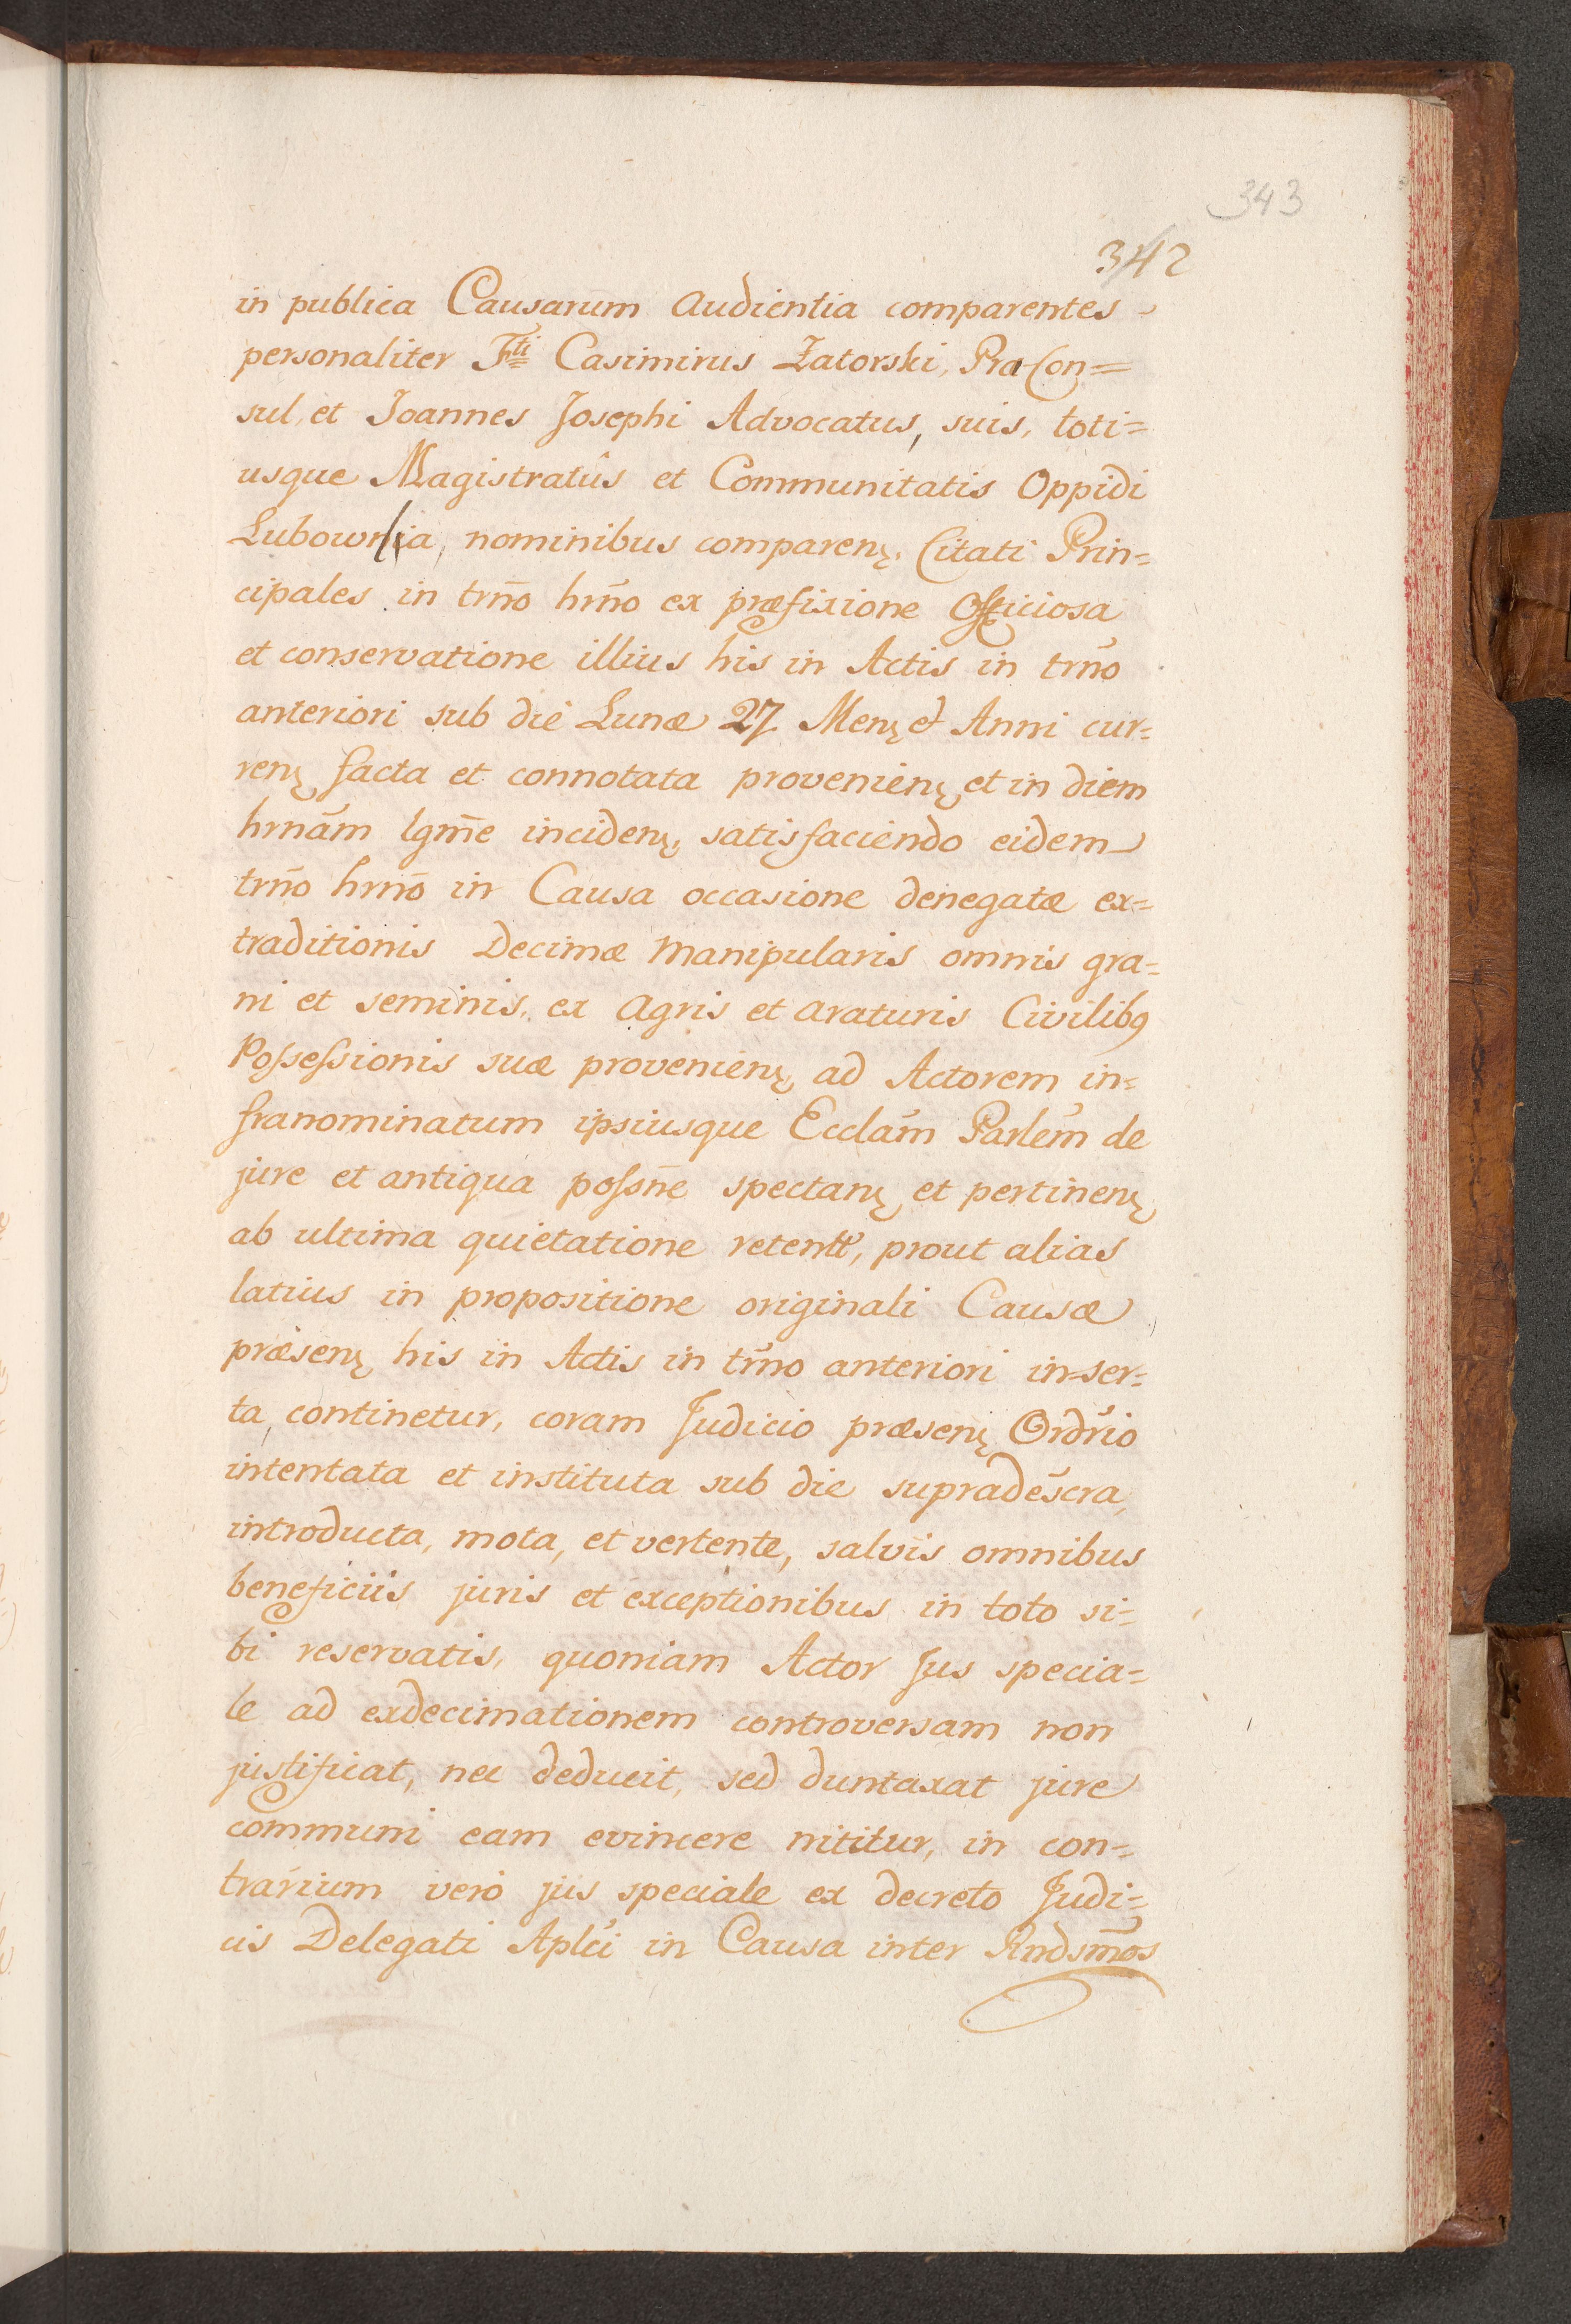 343
342
in publica Causarum Audientia comparentes
personaliter Fti Casimirus Zatorski, Pra-Con=
sul, et Joannes Josephi Advocatus, suis, toti=
usque Magistratûs et Communitatis Oppidi
Lubowlia, nominibus comparenţ. Citati Prin=
cipales in trño hrño ex præfixione Officiosa
et conservatione illius his in Actis in trño
anteriori sub die Lunæ 27. Menţ et Anni cur=
renţ facta et connotata provenienţ et in diem
hrnãm lgm̃e incidenţ, satisfaciendo eidem
trño hrnõ in Causa occasione denegatæ ex=
traditionis Decimæ Manipularis omnis gra=
ni et seminis, ex Agris et Araturis Civilibꝰ
Possessionis suæ provenienţ, ad Actorem in=
franominatum ipsiusque Ecclãm Parlẽm de
jure et antiqua possñe spectanţ et pertinenţ
ab ultima quietatione retentæ, prout alias
latius in propositione originali Causæ
præsenţ his in Actis in trño anteriori inser=
ta, continetur, coram Judicio præsenţ Ordr̃io
intentata et instituta sub die supradẽscra,
introducta, mota, et vertente, salvis omnibus
beneficiis juris et exceptionibus in toto si=
bi reservatis, quoniam Actor Jus specia=
le ad exdecimationem controversam non
justificat, nec deducit, sed duntaxat jure
communi eam evincere nititur, in con=
trarium verò jus speciale ex decreto Judi=
cis Delegati Aplc̃i in Causa inter Rndsm̃os